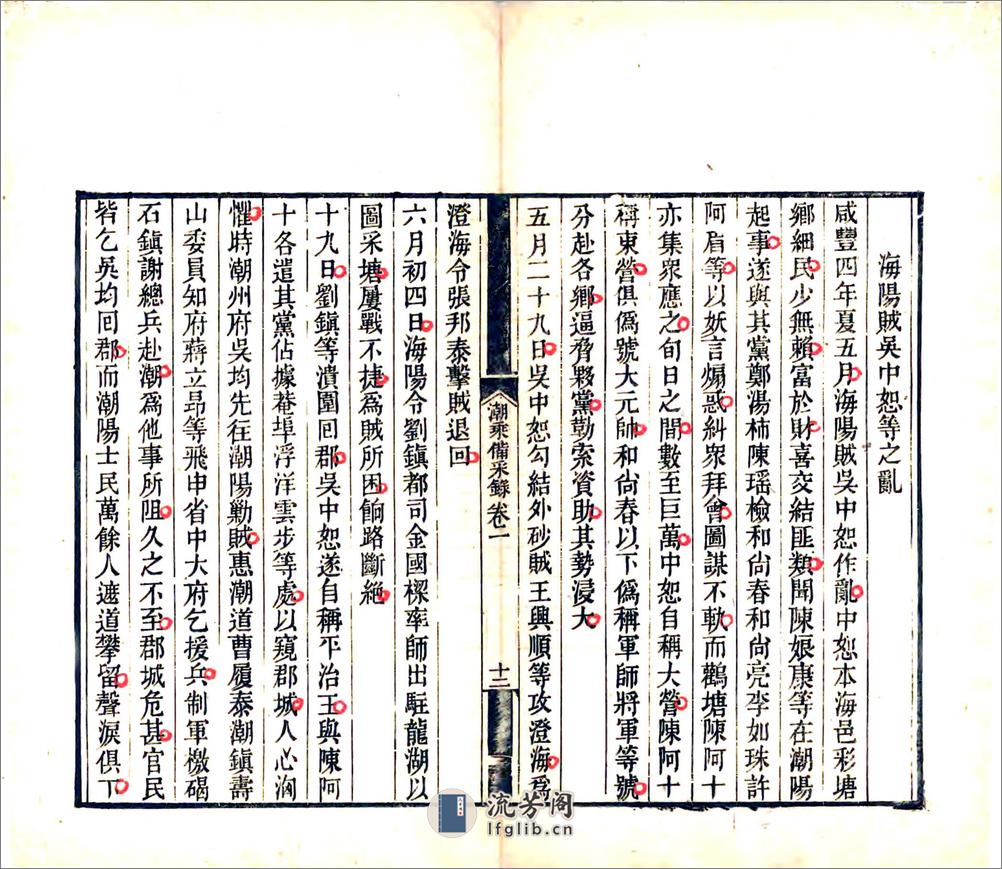 海陽賊吳中恕等之亂
咸豐四年夏五月海陽賊吳中恕作亂中恕本海邑彩塘
鄉細民少無賴富於財喜交結匪類聞陳娘康等在潮陽
起事遂與其黨鄭湯柿陳瑶檢和尚春和尚亮李如珠許
阿眉等以妖言煽惑糾衆拜會圖謀不軌而鸛塘陳阿十
亦集衆應之旬日之間數至巨萬中恕自稱大營陳阿十
稱東營俱僞號大元帥和尚春以下僞稱軍師將軍等號
分赴各鄉逼脅夥黨勒索資助其勢浸大
五月二十九日吳中恕勾結外砂賊王興順等攻澄海爲
澄海令張邦泰擊賊退回
六月初四日海陽令劉鎮都司金國樑率師出駐龍湖以
圖采塘屢戰不捷爲賊所困餉路斷絶
十九日劉鎮等潰圍回郡吳中恕遂自稱平治王與陳阿
十各遣其黨佔據菴埠浮洋雲步等處以窺郡城人心洶
懼時潮州府吳均先往潮陽勦賊惠潮道曹履泰潮鎮壽
山委員知府蔣立昂等飛申省中大府乞援兵制軍檄碣
石鎮謝總兵赴潮爲他事所阻久之不至郡城危甚官民
皆乞吳均回郡而潮陽士民萬餘人遮道攀留聲淚俱下
潮乘備采錄 卷二
十二
流芳阁
lfglib.cn